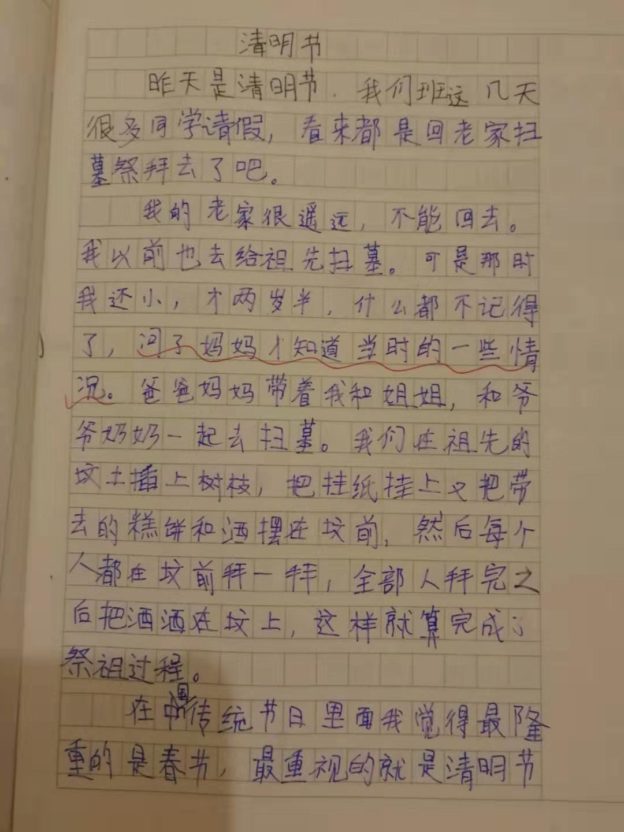 清明节
昨天是清明节.我们班这几天
很多同学请假，看来都是回老家扫
墓祭拜去了吧。
我的老家很遥远，不能回去。
我以前也去给祖先扫墓。可是那时
我还小，才两岁半，什么都不记得
了，问了妈妈才知道当时的一些情
况。爸爸妈妈带着我和姐姐，和爷
爷奶奶一起去扫墓。我们在祖先的
坟土插上树枝，把挂纸挂上又把带
去的糕饼和酒摆在坟前，然后每个
人都在坟前拜一拜，全部人拜完之
后把酒洒在坟上，这样就算完成了
祭祖过程。
在中国传统节日里面我觉得最隆
重的是春节，最重视的就是清明节